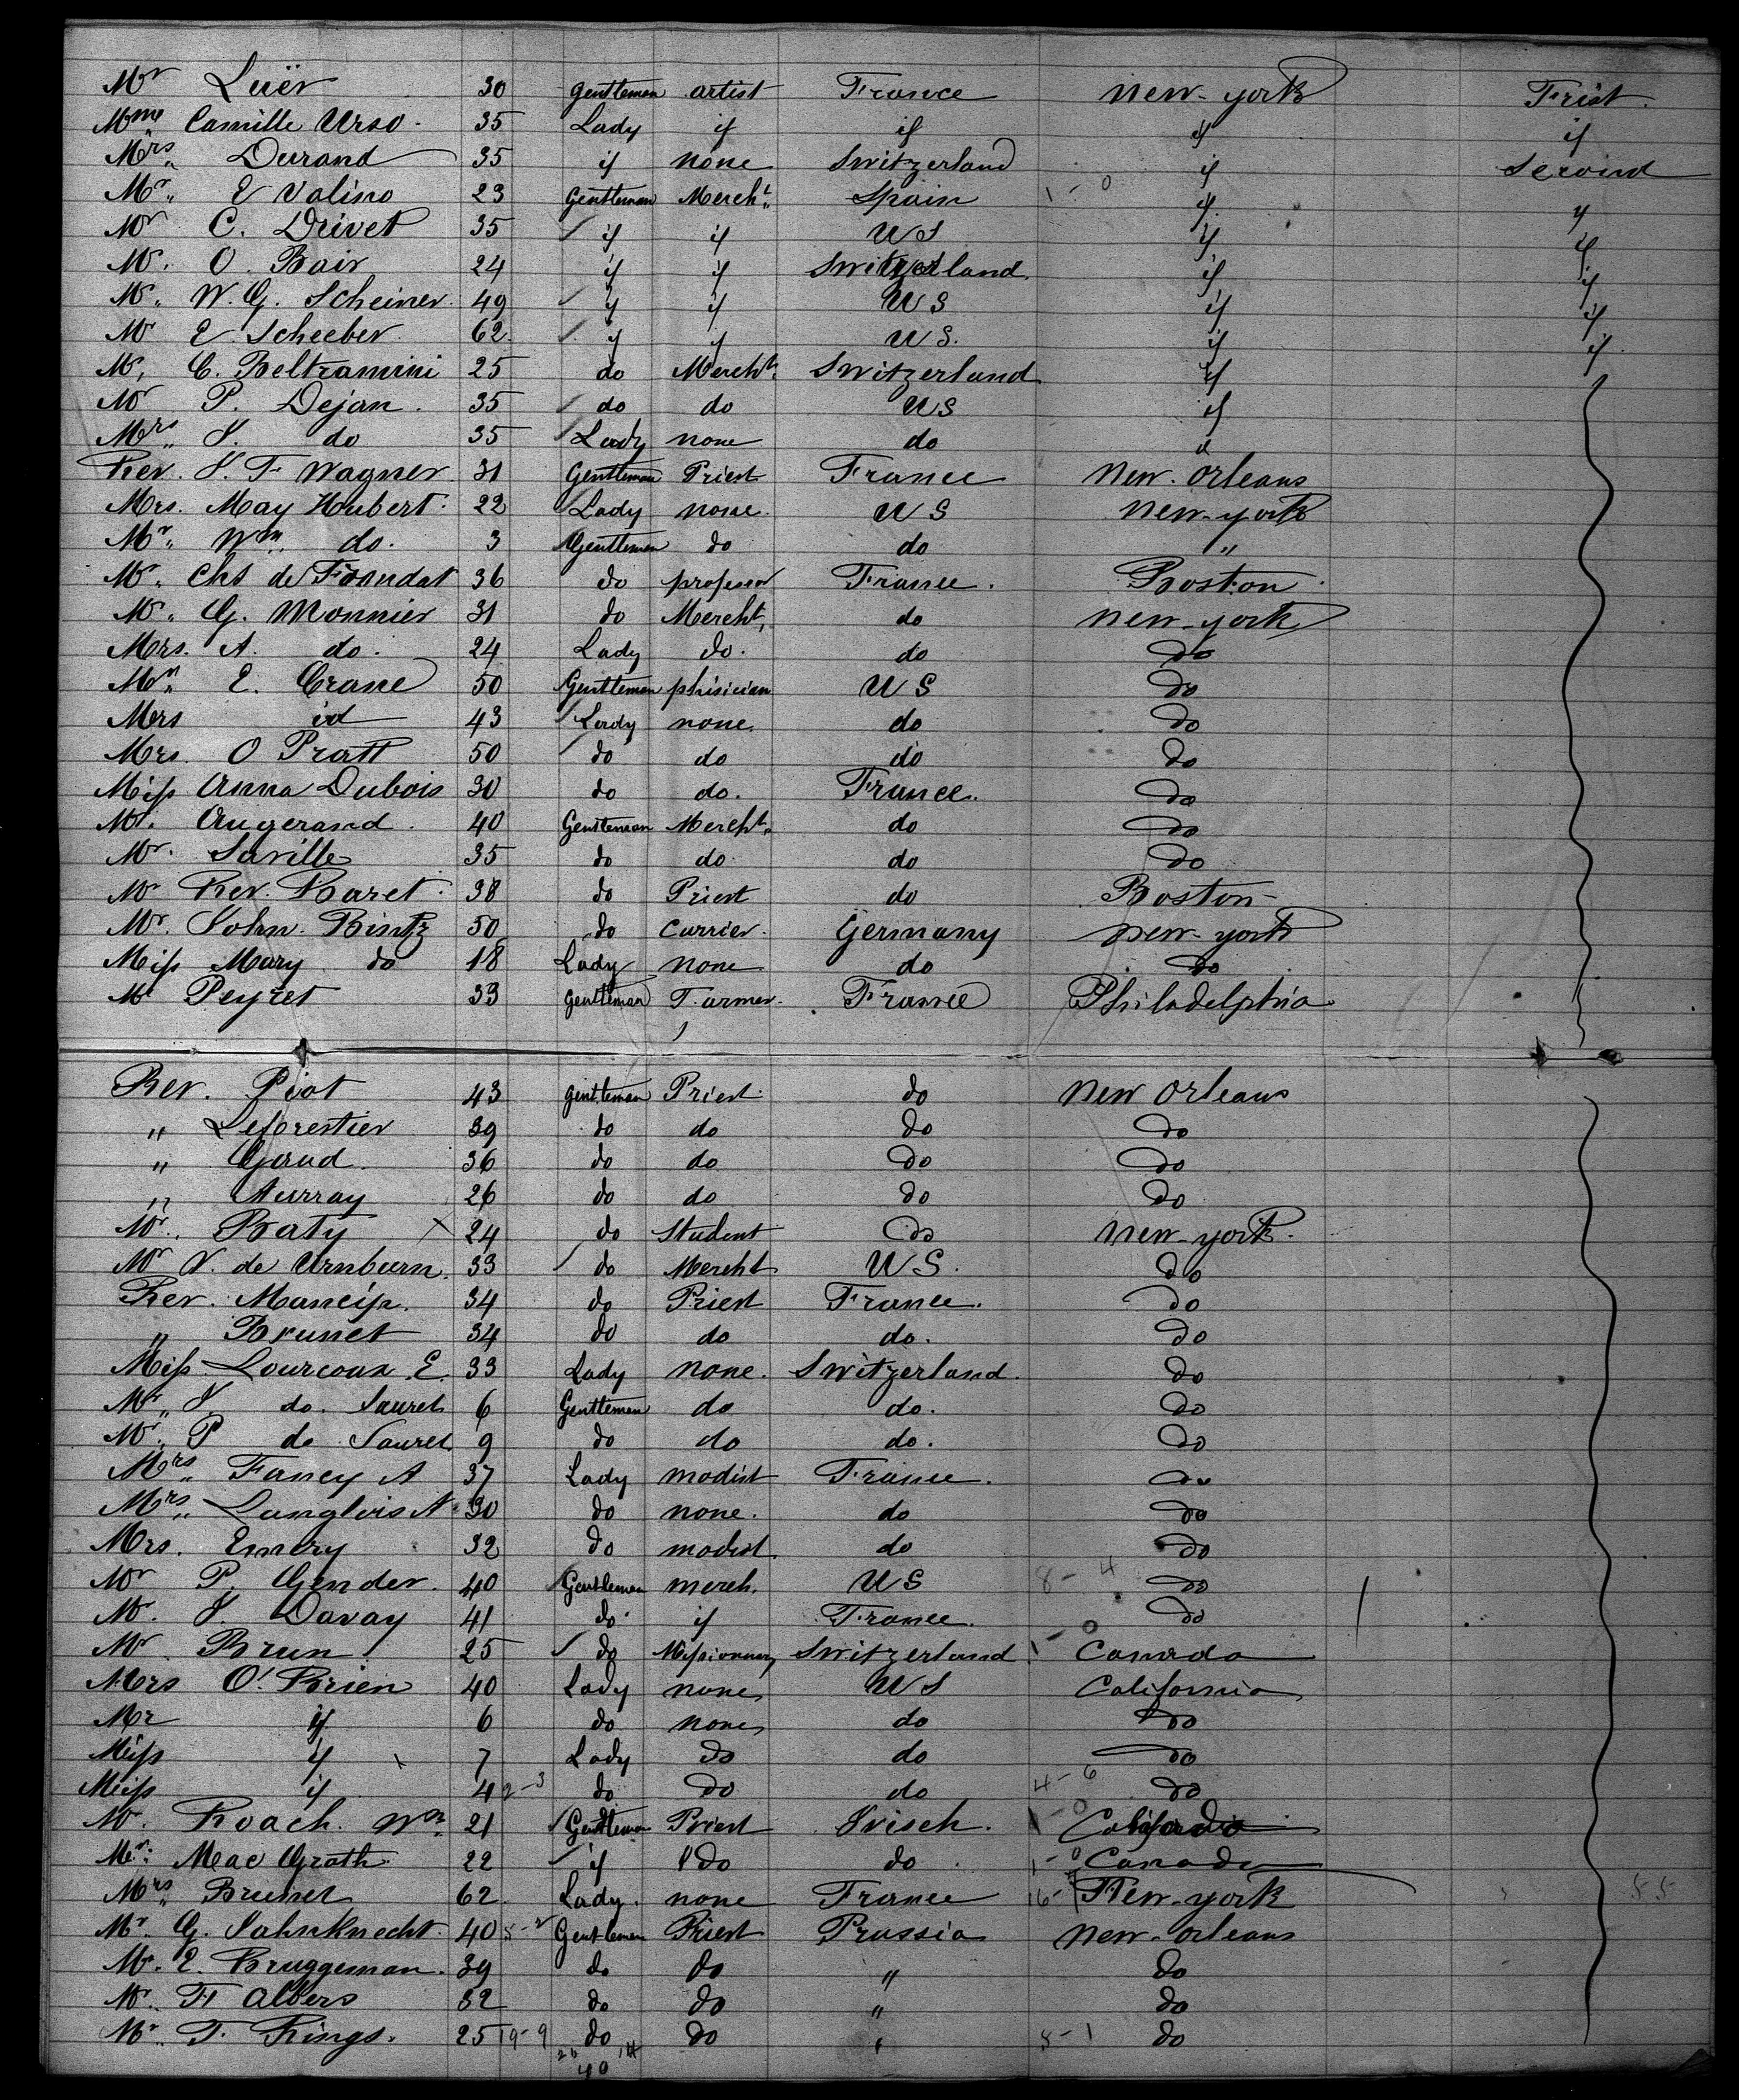 Mr Luër 30 gentlemen artist France new-york Frist.
Mme Camille Urso. 35 Lady if if if if
Mrs Durand 35 if none Switzerland if Secoind
Mr E Valino 23 Gentleman Mercht Spain 1-0 if if
Mr C. Drivet 35 if if US if if
Mr. O. Bair 24 if if Switzerland. if if
Mr. W. G. Scheiner. 49 if if US if if
Mr E Scheeber. 62 if if US. if if
Mr. C. Beltramini 25 do Mercht. Switzerland if
Mr P. Dejan. 35 do do US if
Mrs J. do 35 Lady none do
Rev. J. F Wagner. 31 Gentleman Priest France New-Orleans
Mrs. May Hubert. 22 Lady none. US New-york
Mr. Wm. do. 3 Gentlemen do do "
Mr. Chs de 36 do professor France. Boston
Mr. G. Monnier 31 do Mercht. do new-york
Mrs. A. do. 24 Lady do. do do
Mr. E. Crane 50 Gentlemen phisician US do
Mrs id 43 Lady none. do do
Mrs. O Pratt 50 do do do do
Miss Anna Dubois 30 do do. France. do
Mr. Augerand. 40 Gentleman Mercht. do do
Mr. Saville 35 do do do do
Mr Rev. Baret. 38 do Priest do Boston
Mr. John. Bintz 50 do Currier. Germany new-york
Miss Mary do 18 Lady none do do
Mr Peyret 33 gentleman Farmer. France Philadelphia
Rev. Piot 43 gentleman Priest do New Orleans
" Leforestier 39 do do do do
" Gaud. 36 do do do do
" Aurray 26 do do do do
Mr. Baty 24 do Student do new-york.
Mr V. de Arnburn. 33 do Mercht US. do
Rev. 34 do Priest France. do
" Brunet 34 do do do. do
Miss Lourcoux E. 33 Lady none. Switzerland. do
Mr. J. do. Sauret 6 Gentlemen do do. do
Mr. P do Sauret 9 do do do. do
Mrs. Fancy A 37 Lady modist France. do
Mrs. Langlois A 30 do none. do do
Mrs. Emery 32 do modist. do do
Mr P. Gender. 40 Gentleman merch. US 8-4 do
Mr. J. Davay 41 do if France. do
Mr Brun. 25 do Missionnary Switzerland 1-0 Canada
Mrs O'Brien 40 Lady none US California
Mr if 6 do none do do
Miss if 7 Lady do do do
Miss if 4 2-3 do do do 4-6 do
Mr. Roach. Wm. 21 Gentleman Priest Irisch. 1-0
Mr. Mac Grath. 22 if do do 1-0 Canada
Mrs Brunet 62 Lady. none France 16- New-york 55
Mr. G. Sahnknecht. 40 5-2 Gentlemen Priest Prussia new-orleans
Mr. E. Bruggeman. 39 do do " do
Mr. F Albers 32 do do " do
Mr. T. Rings. 25 19-9 do do " 8-1 do
26 14
40